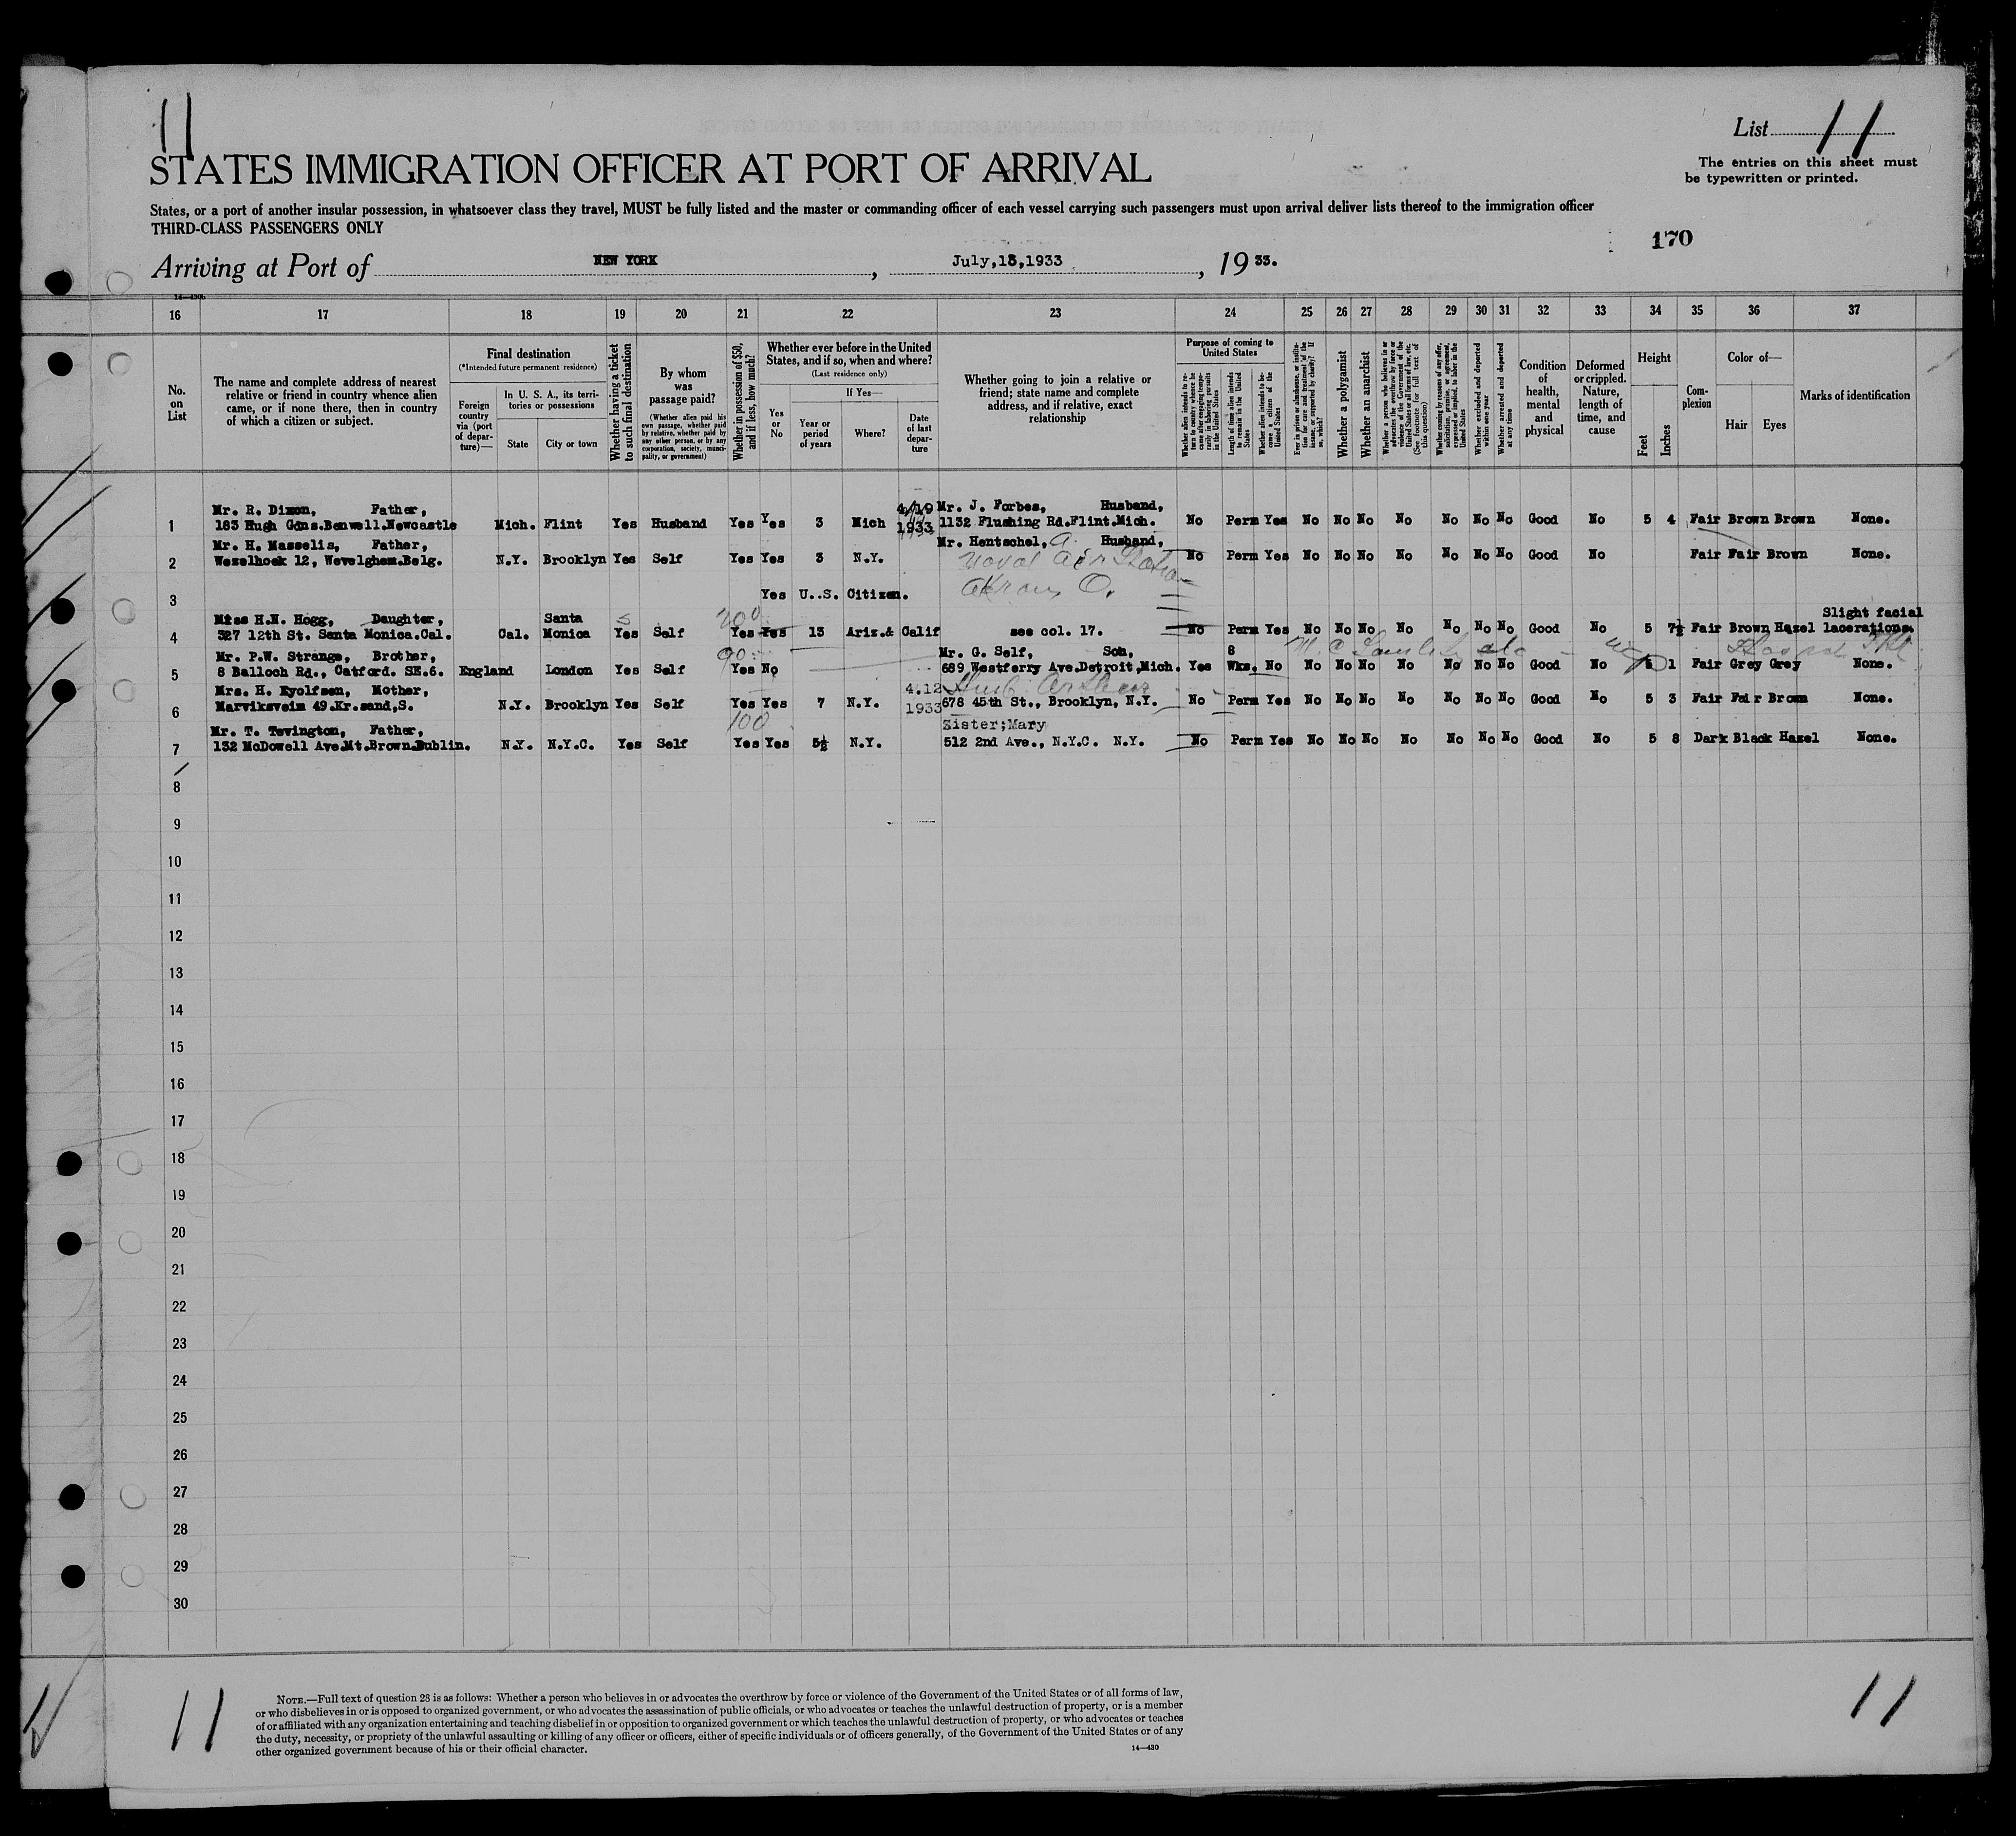 11
List 11
STATES IMMIGRATION OFFICER AT PORT OF ARRIVAL
The entries on this sheet must
be typewritten or printed.
States, or a port of another insular possession, in whatsoever class they travel, MUST be fully listed and the master or commanding officer of each vessel carrying such passengers must upon arrival deliver lists thereof to the immigration officer
THIRD-CLASS PASSENGERS ONLY
170
Arriving at Port of NEW YORK, July,15,1933, 1933.
14—430b
16 17 18 19 20 21 22 23 24 25 26 27 28 29 30 31 32 33 34 35 36 37
No. on List
The name and complete address of nearest relative or friend in country whence alien came, or if none there, then in country of which a citizen or subject.
Final destination
(*Intended future permanent residence)
Foreign country via (port of departure)—
In U. S. A., its territories or possessions
State
City or town
Whether having a ticket to such final destination
By whom was passage paid?
(Whether alien paid his own passage, whether paid by relative, whether paid by any other person, or by any corporation, society, municipality, or government)
Whether in possession of $50, and if less, how much?
Whether ever before in the United States, and if so, when and where?
(Last residence only)
Yes or No
If Yes—
Year or period of years
Where?
Date of last departure
Whether going to join a relative or friend; state name and complete address, and if relative, exact relationship
Purpose of coming to United States
Whether alien intends to return to country whence he came after engaging temporarily in laboring pursuits in the United States
Length of time alien intends to remain in the United States
Whether alien intends to become a citizen of the United States
Ever in prison or almshouse, or institution for care and treatment of the insane, or supported by charity? If so, which?
Whether a polygamist
Whether an anarchist
Whether a person who believes in or advocates the overthrow by force or violence of the Government of the United States or all forms of law, etc. (See footnote for full text of this question)
Whether coming by reasons of any offer, solicitation, promise, or agreement, expressed or implied, to labor in the United States
Whether excluded and deported within one year
Whether arrested and deported at any time
Condition of health, mental and physical
Deformed or crippled. Nature, length of time, and cause
Height
Feet
Inches
Complexion
Color of—
Hair
Eyes
Marks of identification
Mr. R. Dixon, Father, 4/19 Mr. J. Forbes, Husband,
1 183 Hugh Gdns.Benwell.Newcastle Mich. Flint Yes Husband Yes Yes 3 Mich 1933 1132 Flushing Rd.Flint.Mich. No Perm Yes No No No No No No No Good No 5 4 Fair Brown Brown None.
Mr. H. Masselis, Father, Mr. Hentschel, A. Husband,
2 Wezelhoek 12, Wevelghem.Belg. N.Y. Brooklyn Yes Self Yes Yes 3 N.Y. Naval Air Station No Perm Yes No No No No No No No Good No Fair Fair Brown None.
3 Yes U..S. Citizen. Akron, O.
Miss H.N. Hogg, Daughter, Santa 200 Slight facial
4 327 12th St. Santa Monica.Cal. Cal. Monica Yes Self Yes Yes 13 Ariz.& Calif see col. 17. No Perm Yes No No No No No No No Good No 5 7½ Fair Brown Hazel lacerations.
Mr. P.W. Strange, Brother, 90 Mr. G. Self, Son, 8
5 8 Balloch Rd., Catford. SE.6. England London Yes Self Yes No 689 Westferry Ave.Detroit,Mich. Yes Wks. No No No No No No No No Good No 5 1 Fair Grey Grey None.
Mrs. H. Eyolfsen, Mother, 4.12
6 Marviksveim 49.Kr.sand,S. N.Y. Brooklyn Yes Self Yes Yes 7 N.Y. 1933 678 45th St., Brooklyn, N.Y. No Perm Yes No No No No No No No Good No 5 3 Fair Fair Brown None.
Mr. T. Tevington, Father, 100 Sister;Mary
7 132 McDowell Ave.Mt.Brown.Dublin. N.Y. N.Y.C. Yes Self Yes Yes 5½ N.Y. 512 2nd Ave., N.Y.C. N.Y. No Perm Yes No No No No No No No Good No 5 8 Dark Black Hazel None.
8
9
10
11
12
13
14
15
16
17
18
19
20
21
22
23
24
25
26
27
28
29
30
11
11
NOTE.—Full text of question 28 is as follows: Whether a person who believes in or advocates the overthrow by force or violence of the Government of the United States or of all forms of law,
or who disbelieves in or is opposed to organized government, or who advocates the assassination of public officials, or who advocates or teaches the unlawful destruction of property, or is a member
of or affiliated with any organization entertaining and teaching disbelief in or opposition to organized government or which teaches the unlawful destruction of property, or who advocates or teaches
the duty, necessity, or propriety of the unlawful assaulting or killing of any officer or officers, either of specific individuals or of officers generally, of the Government of the United States or of any
other organized government because of his or their official character.
14—430